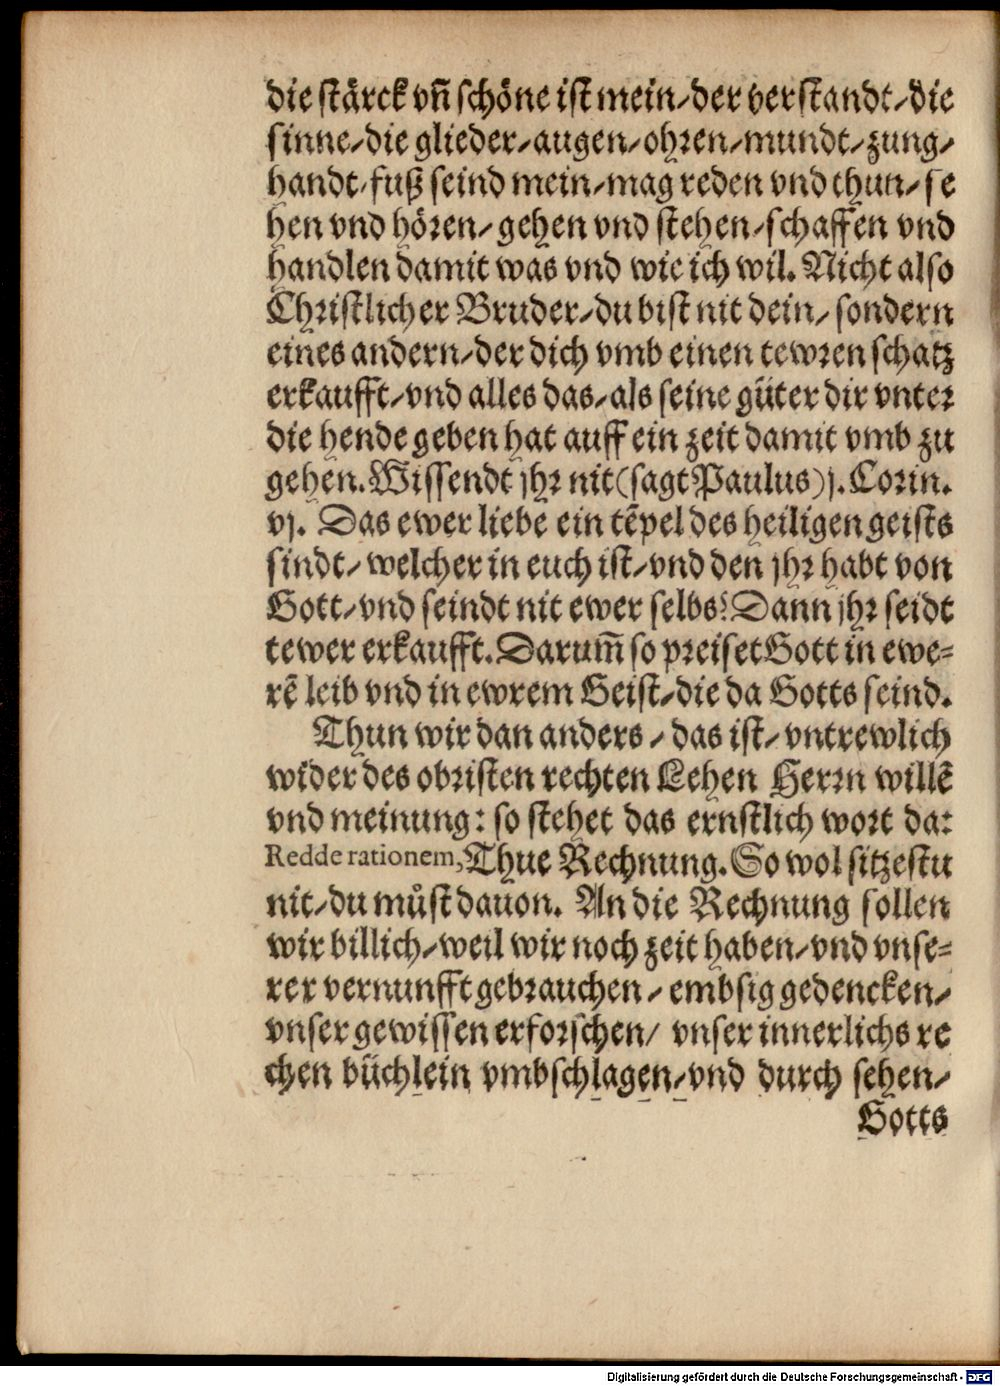 die stärck vñ schöne ist mein/der verstandt/die
sinne/die glieder/augen/ohren/mundt/zung/
handt/fuß seind mein/mag reden vnd thun/se
hen vnd hören/gehen vnd stehen/schaffen vnd
handlen damit was vnd wie ich wil. Nicht also
Christlicher Bruder/du bist nit dein/sondern
eines andern/der dich vmb einen tewren schatz
erkaufft/vnd alles das/als seine güter dir vnter
die hende geben hat auff ein zeit damit vmb zu
gehen. Wissendt jhr nit (sagt Paulus) j. Corin.
vj. Das ewer liebe ein tẽpel des heiligen geists
sindt/welcher in euch ist/vnd den jhr habt von
Gott/vnd seindt nit ewer selbs? Dann jhr seidt
tewer erkaufft. Darum̃ so preiset Gott in ewe=
rẽ leib vnd in ewrem Geist/die da Gotts seind.
Thun wir dan anders/das ist/vntrewlich
wider des obristen rechten Lehen Herrn willẽ
vnd meinung: so stehet das ernstlich wort da:
Redde rationem, Thue Rechnung. So wol sitzestu
nit/du můst dauon. An die Rechnung sollen
wir billich/weil wir noch zeit haben/vnd vnse=
rer vernunfft gebrauchen/embsig gedencken/
vnser gewissen erforschen/vnser innerlichs re
chen büchlein vmbschlagen/vnd durch sehen/
Gotts
Digitalisierung gefördert durch die Deutsche Forschungsgemeinschaft - DFG